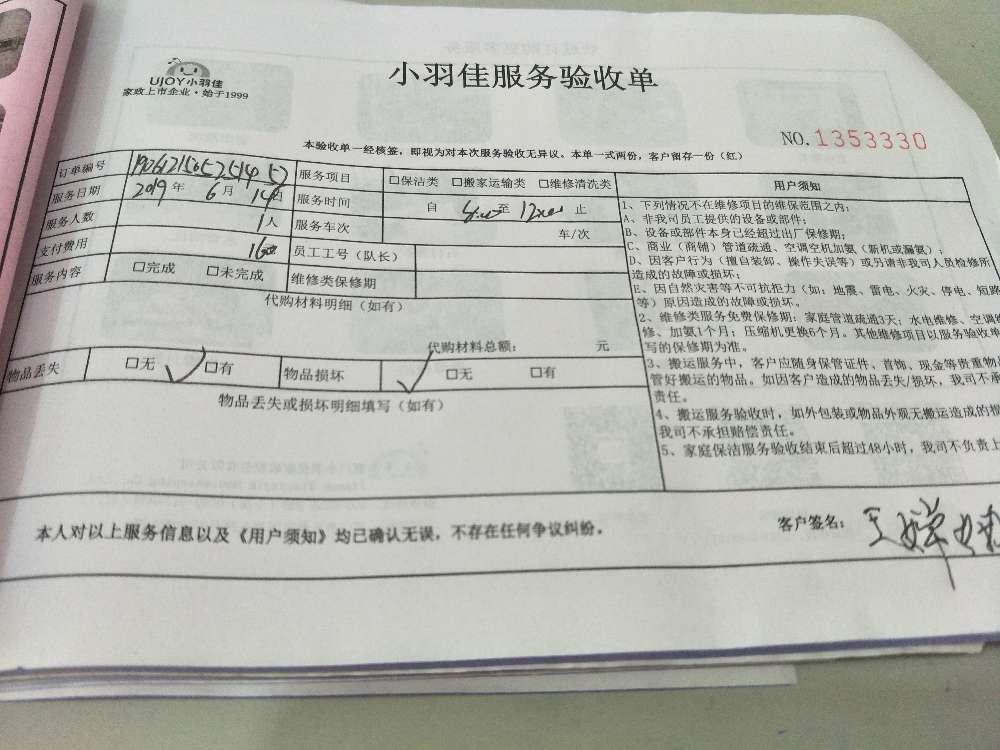 UJOY小羽佳
家政上市企业·始于1999
小羽佳服务验收单
NO.1353330
本验收单一经核签，即视为对本次服务验收无异议。本单一式两份，客户留存一份（红）
订单编号 服务项目 □保洁类 □搬家运输类 □维修清洗类
服务日期 2019年 6月 14日 服务时间 自 至 止
服务人数 1人 服务车次 车/次
支付费用 员工工号（队长）
服务内容 □完成 □未完成 维修类保修期
代购材料明细（如有）
代购材料总额： 元
物品丢失 □无 □有 物品损坏 □无 □有
物品丢失或损坏明细填写（如有）
用户须知
1、下列情况不在维修项目的维保范围之内：
A、非我司员工提供的设备或部件；
B、设备或部件本身已经超过出厂保修期；
C、商业（商铺）管道疏通、空调空机加氨（新机或漏氨）；
D、因客户行为（擅自装卸、操作失误等）或另请非我司人员检修所
造成的故障或损坏；
E、因自然灾害等不可抗拒力（如：地震、雷电、火灾、停电、短路
等）原因造成的故障或损坏。
2、维修类服务免费保修期：家庭管道疏通3天；水电维修、空调维
修、加氨1个月；压缩机更换6个月。其他维修项目以服务验收单
写的保修期为准。
3、搬运服务中，客户应随身保管证件、首饰、现金等贵重物品
管好搬运的物品。如因客户造成的物品丢失/损坏，我司不承
责任。
4、搬运服务验收时，如外包装或物品外观无搬运造成的损
我司不承担赔偿责任。
5、家庭保洁服务验收结束后超过48小时，我司不负责上
本人对以上服务信息以及《用户须知》均已确认无误，不存在任何争议纠纷。
客户签名：